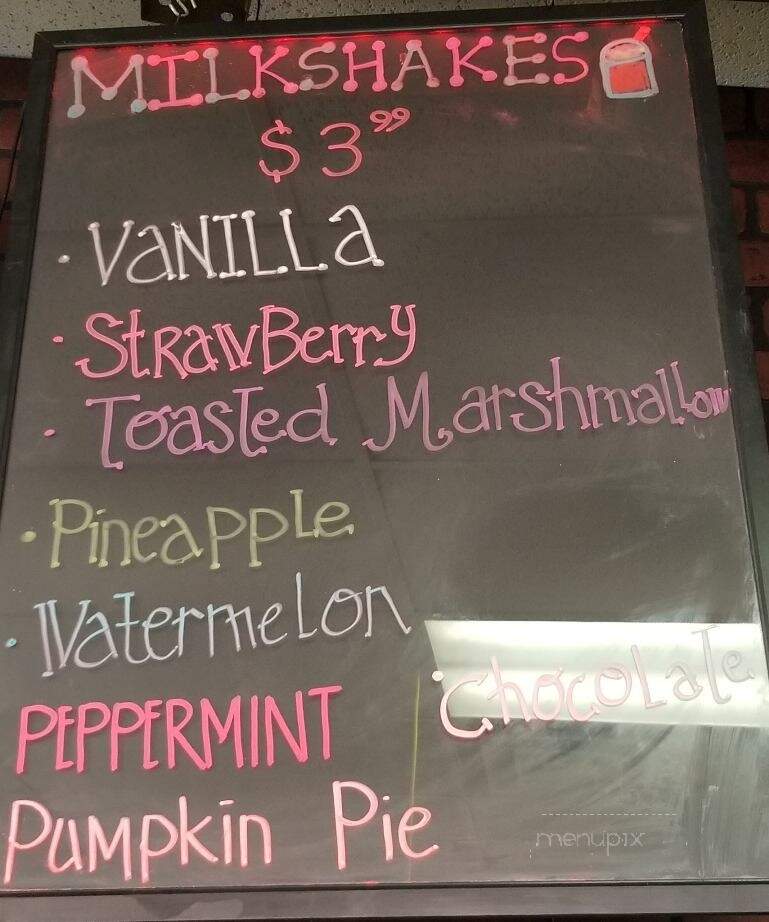 MILKSHAKES
$3.99
· VaNILLa
· StrawBerry
· Toasted Marshmallow
· Pineapple
· Watermelon
PEPPERMINT
· ChocoLaTe
Pumpkin Pie
menupix